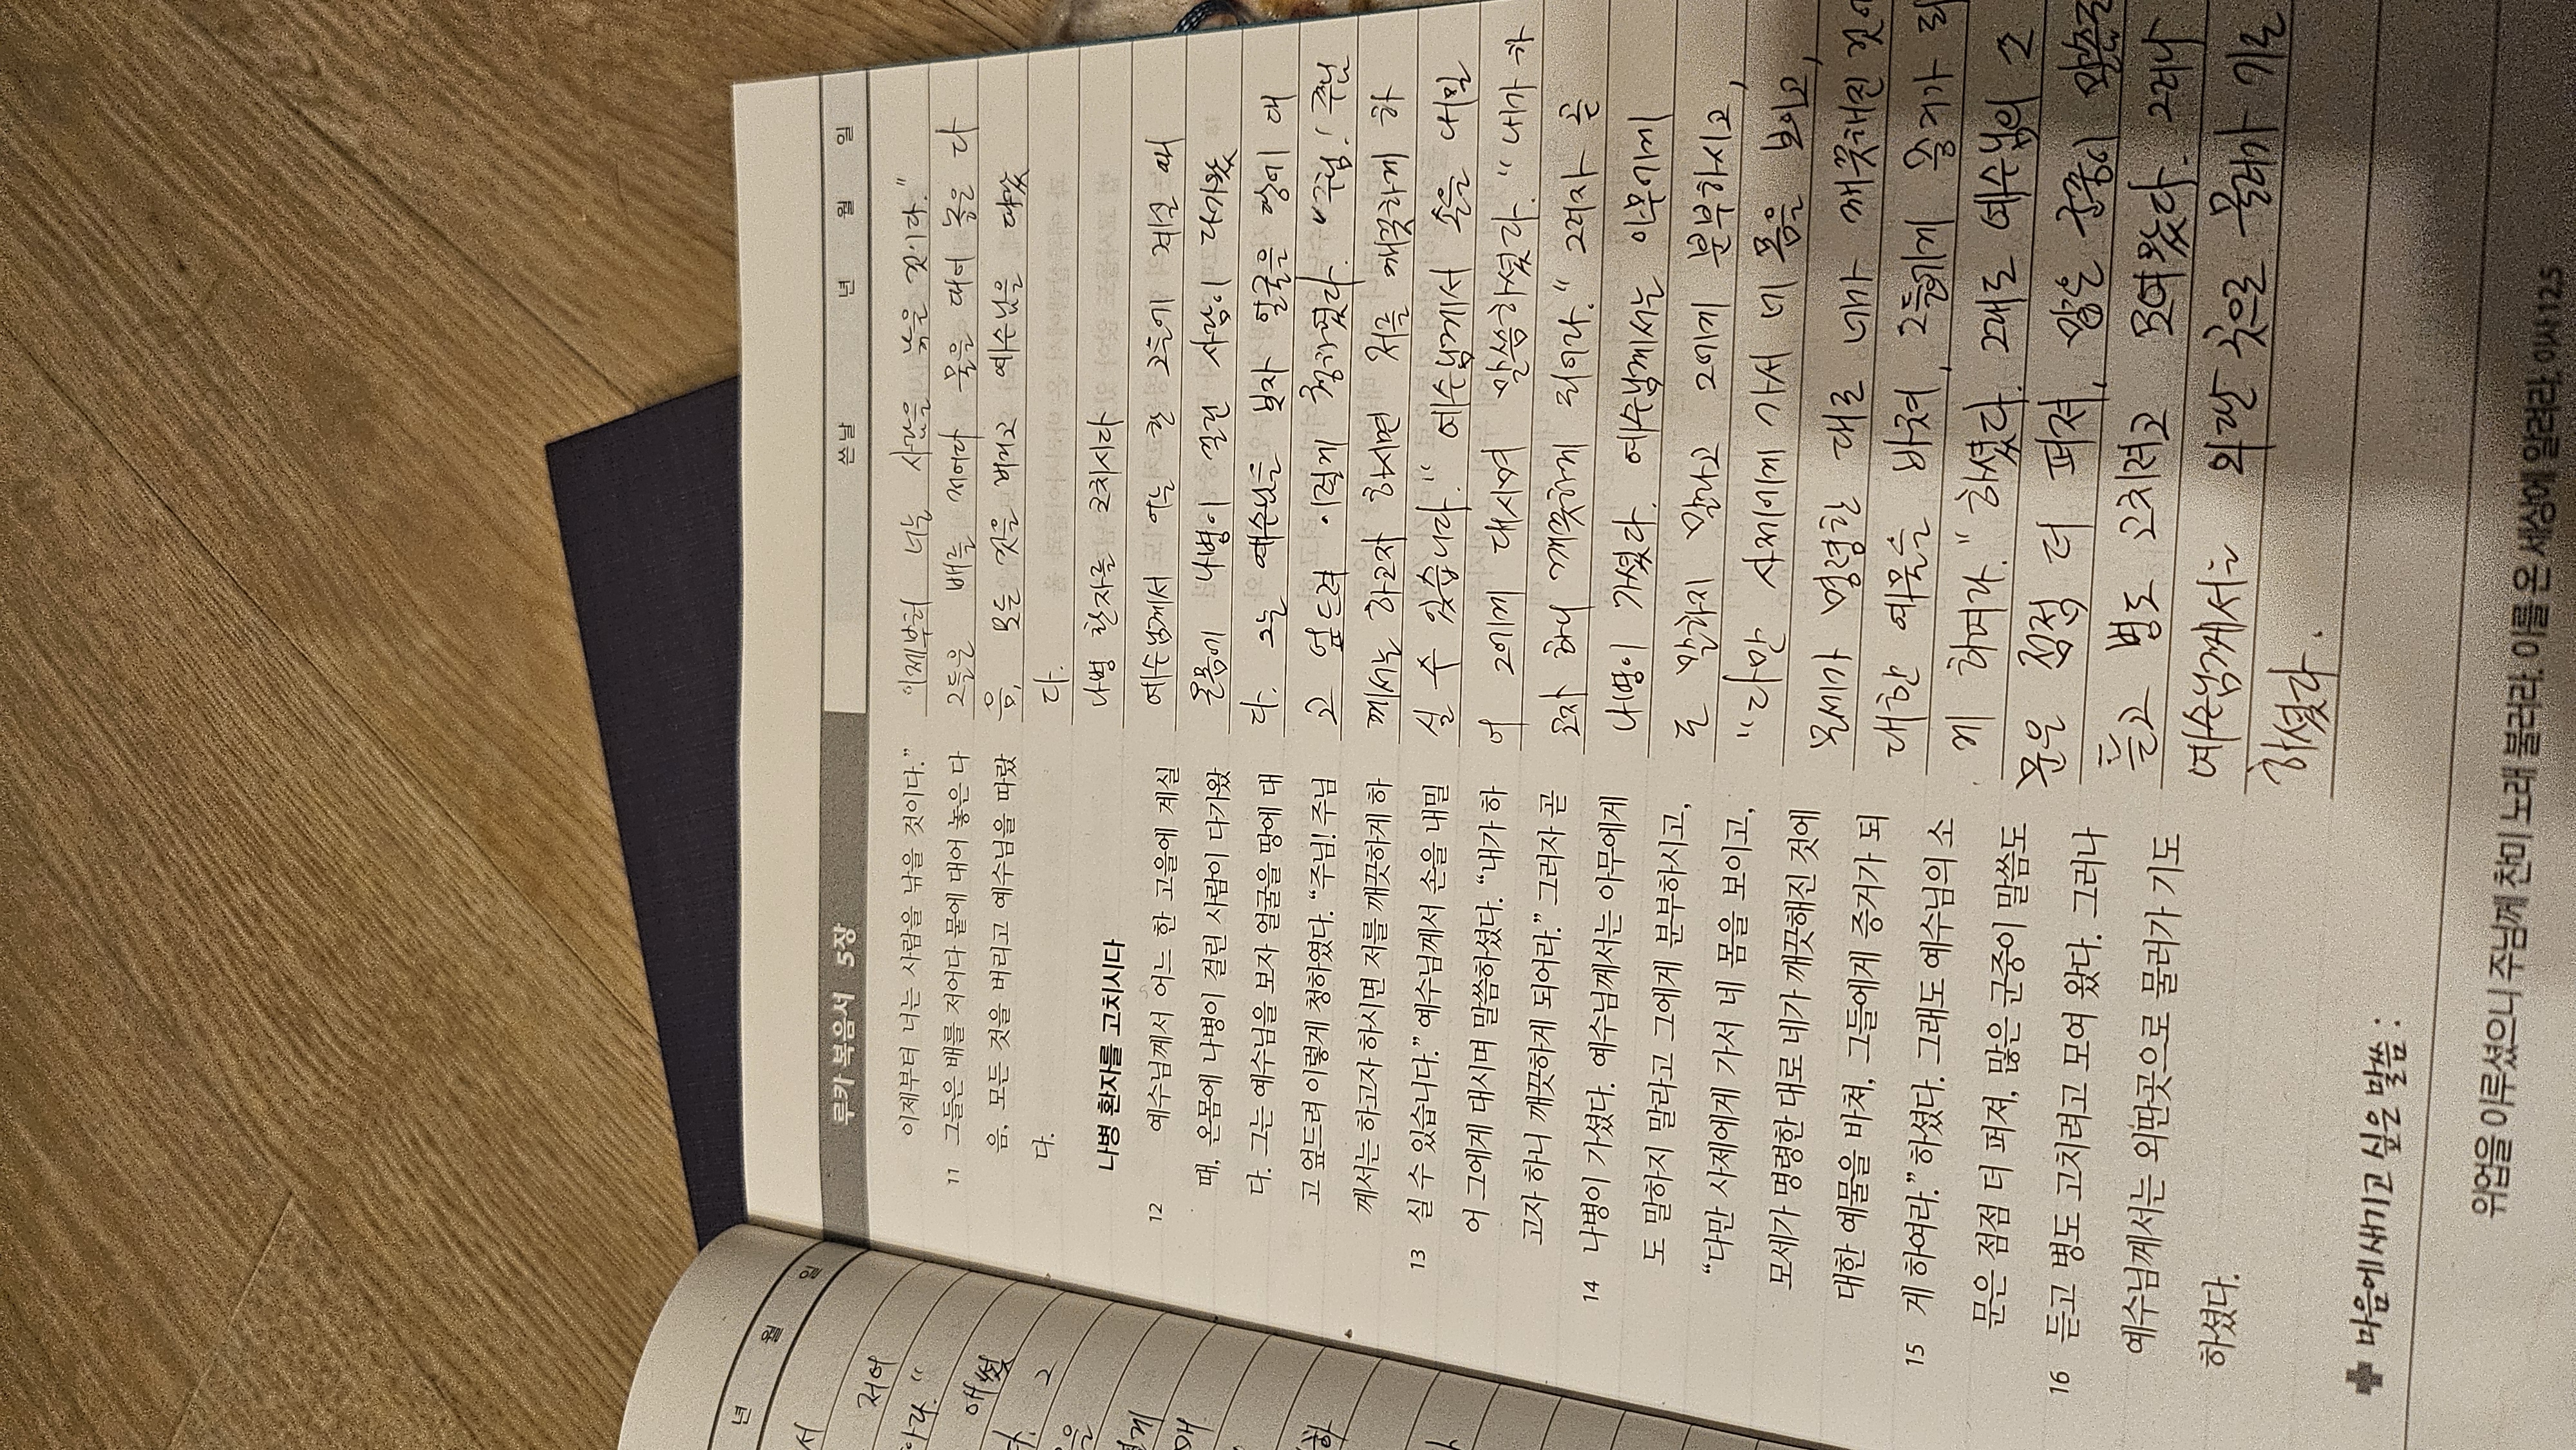 루카 복음서 5장
쓴날 년 월 일
이제부터 너는 사람을 낚을 것이다.”
11 그들은 배를 저어다 뭍에 대어 놓은 다
음, 모든 것을 버리고 예수님을 따랐
다.
나병 환자를 고치시다
12 예수님께서 어느 한 고을에 계실
때, 온몸에 나병이 걸린 사람이 다가왔
다. 그는 예수님을 보자 얼굴을 땅에 대
고 엎드려 이렇게 청하였다. “주님! 주님
께서는 하고자 하시면 저를 깨끗하게 하
13 실 수 있습니다.” 예수님께서 손을 내밀
어 그에게 대시며 말씀하셨다. “내가 하
고자 하니 깨끗하게 되어라.” 그러자 곧
14 나병이 가셨다. 예수님께서는 아무에게
도 말하지 말라고 그에게 분부하시고,
“다만 사제에게 가서 네 몸을 보이고,
모세가 명령한 대로 네가 깨끗해진 것에
대한 예물을 바쳐, 그들에게 증거가 되
15 게 하여라.” 하셨다. 그래도 예수님의 소
문은 점점 더 퍼져, 많은 군중이 말씀도
16 듣고 병도 고치려고 모여 왔다. 그러나
예수님께서는 외딴곳으로 물러가 기도
하셨다.
이제부터 너는 사람을 낚을 것이다."
그들은 배를 저어다 뭍을 대어 놓은 다
음, 모든 것을 버리고 예수님을 따랐
다.
나병 환자를 고치시다
예수님께서 어느 한 고을에 계실 때
온몸에 나병이 걸린 사람이 다가왔
다. 그는 예수님을 보자 얼굴을 땅에 대
고 엎드려 이렇게 청하였다. "주님! 주님
께서는 하고자 하시면 저를 깨끗하게 하
실 수 있습니다." 예수님께서 손을 내밀
어 그에게 대시며 말씀하셨다. "내가 하
고자 하니 깨끗하게 되어라." 그러자 곧
나병이 가셨다. 예수님께서는 아무에게
도 말하지 말라고 그에게 분부하시고,
"다만 사제에게 가서 네 몸을 보이고,
모세가 명령한 대로 네가 깨끗해진 것에
대한 예물을 바쳐, 그들에게 증거가 되
게 하여라." 하셨다. 그래도 예수님의
문은 점점 더 퍼져, 많은 군중이
듣고 병도 고치려고 모여 왔다. 그러나
예수님께서는 외딴 곳으로 물러가 기도
하셨다.
마음에 새기고 싶은 말씀 :
위업을 이루셨으니 주님께 찬미 노래 불러라. 이를 온 세상에 알려라. 이사12,5
년 월 일
서
저어